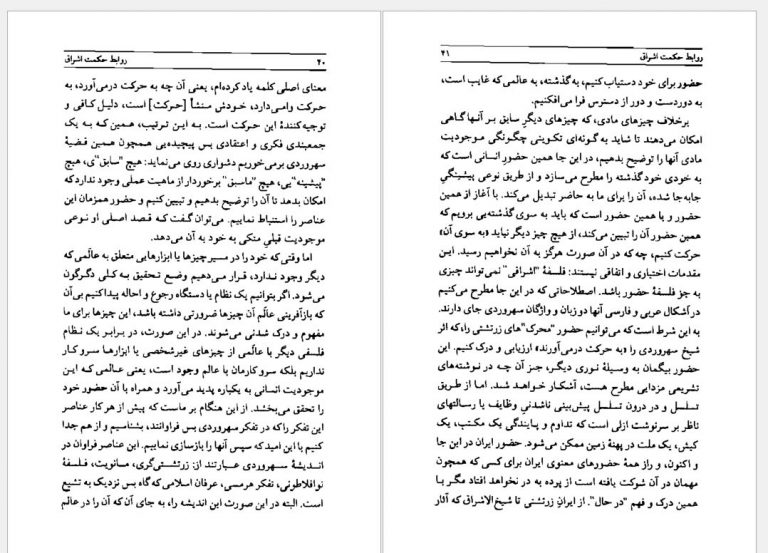 ۴۰ روابط حکمت اشراق
معنای اصلی کلمه یاد کرده‌ام، یعنی آن چه به حرکت درمی‌آورد، به
حرکت وامی‌دارد، خودش منشأ [حرکت] است، دلیل کافی و
توجیه‌کنندهٔ این حرکت است. به این ترتیب، همین که به یک
جمعبندی فکری و اعتقادی بس پیچیده‌یی همچون همین قضیهٔ
سهروردی برمی‌خوریم دشواری روی می‌نماید: هیچ "سابق"ی، هیچ
"پیشینه"یی، هیچ "ماسبق" برخوردار از ماهیت عملی وجود ندارد که
امکان بدهد تا آن را توضیح بدهیم و تبیین کنیم و حضور همزمان این
عناصر را استنباط نماییم. می‌توان گفت که قصد اصلی او نوعی
موجودیت قبلیِ متکی به خود به آن می‌دهد.
اما وقتی که خود را در مسیر چیزها یا ابزارهایی متعلق به عالَمی که
دیگر وجود ندارد، قرار می‌دهیم وضع تحقیق به کلی دگرگون
می‌شود. اگر بتوانیم یک نظام یا دستگاه رجوع و احاله پیدا کنیم بی‌آن
که بازآفرینی عالَم آن چیزها ضرورتی داشته باشد، این چیزها برای ما
مفهوم و درک شدنی می‌شوند. در این صورت، در برابر یک نظام
فلسفی دیگر با عالَمی از چیزهای غیرشخصی یا ابزارها سر و کار
نداریم بلکه سر و کارمان با عالم وجود است، یعنی عالمی که این
موجودیت انسانی به یکباره پدید می‌آورد و همراه با آن حضور خود
را تحقق می‌بخشد. از این هنگام بر ماست که پیش از هر کار عناصر
این تفکر را که در تفکر سهروردی بس فراوانند، بشناسیم و از هم جدا
کنیم با این امید که سپس آنها را بازسازی نماییم. این عناصر فراوان در
اندیشهٔ سهروردی عبارتند از: زرتشتی‌گری، مانویت، فلسفهٔ
نوافلاطونی، تفکر هرمسی، عرفان اسلامی که گاه بس نزدیک به تشیع
است. البته در این صورت این اندیشه را، به جای آن که آن را در عالم
روابط حکمت اشراق ۴۱
حضور برای خود دستیاب کنیم، به گذشته، به عالمی که غایب است،
به دوردست و دور از دسترس فرا می‌افکنیم.
برخلاف چیزهای مادی، که چیزهای دیگرِ سابق بر آنها گاهی
امکان می‌دهند تا شاید به گونه‌ای تکوینی چگونگی موجودیت
مادی آنها را توضیح بدهیم، در این جا همین حضورِ انسانی است که
به خودی خود گذشته را مطرح می‌سازد و از طریق نوعی پیشینگیِ
جابه‌جا شده، آن را برای ما به حاضر تبدیل می‌کند. با آغاز از همین
حضور و با همین حضور است که باید به سوی گذشته‌یی برویم که
همین حضور آن را تبیین می‌کند، از هیچ چیز دیگر نباید «به سوی آن»
حرکت کنیم، چه که در آن صورت هرگز به آن نخواهیم رسید. این
مقدمات اختیاری و اتفاقی نیستند: فلسفهٔ "اشراقی" نمی‌تواند چیزی
به جز فلسفهٔ حضور باشد. اصطلاحاتی که در این جا مطرح می‌کنیم
در اَشکال عربی و فارسی آنها دو زبان و واژگان سهروردی جای دارند.
به این شرط است که می‌توانیم حضور "محرک"های زرتشتی را، که اثر
شیخ سهروردی را «به حرکت درمی‌آورند» ارزیابی و درک کنیم. این
حضور بیگمان به وسیلهٔ نوری دیگر، جز آن چه در نوشته‌های
تشریعی مزدایی مطرح هست، آشکار خواهد شد. اما از طریق
تسلسل و در درون تسلسل پیش‌بینی ناشدنیِ وظایف یا رسالتهای
ناظر بر سرنوشت ازلی است که تداوم و پایندگی یک مکتب، یک
کیش، یک ملت در پهنهٔ زمین ممکن می‌شود. حضور ایران در این جا
و اکنون، و راز همهٔ حضورهای معنوی ایران برای کسی که همچون
مهمان در آن شوکت یافته است از پرده به در نخواهد افتاد مگر با
همین درک و فهم "در حال". از ایرانِ زرتشتی تا شیخ‌الاشراق که آثار